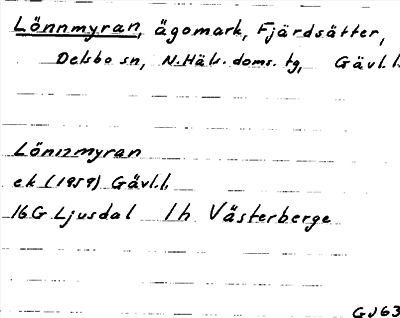 Lönnmyran, ägomark, Fjärdsätter,
Delsbo sn, N. Häls. doms. tg, Gävl.l.
Lönnmyran
ek (1959) Gävl.l.
16G Ljusdal 1h Västerberge
GJ63